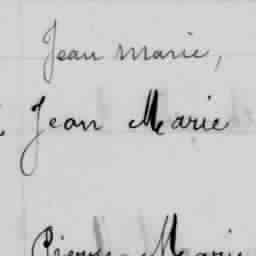 Jean Marie,
Jean Marie
Pierre Marie